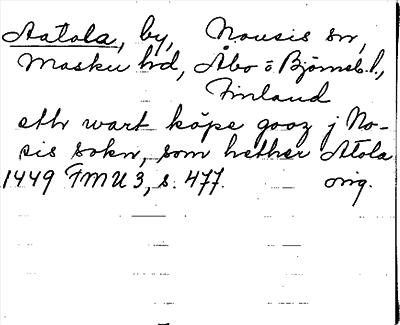 Aatola, by, Nousis sn,
Masku hd, Åbo o Björneb. l.,
Finland
eth wart köpe gooz j No-
sis sokn, som hether Atola
1449 FMU 3, s. 477. orig.